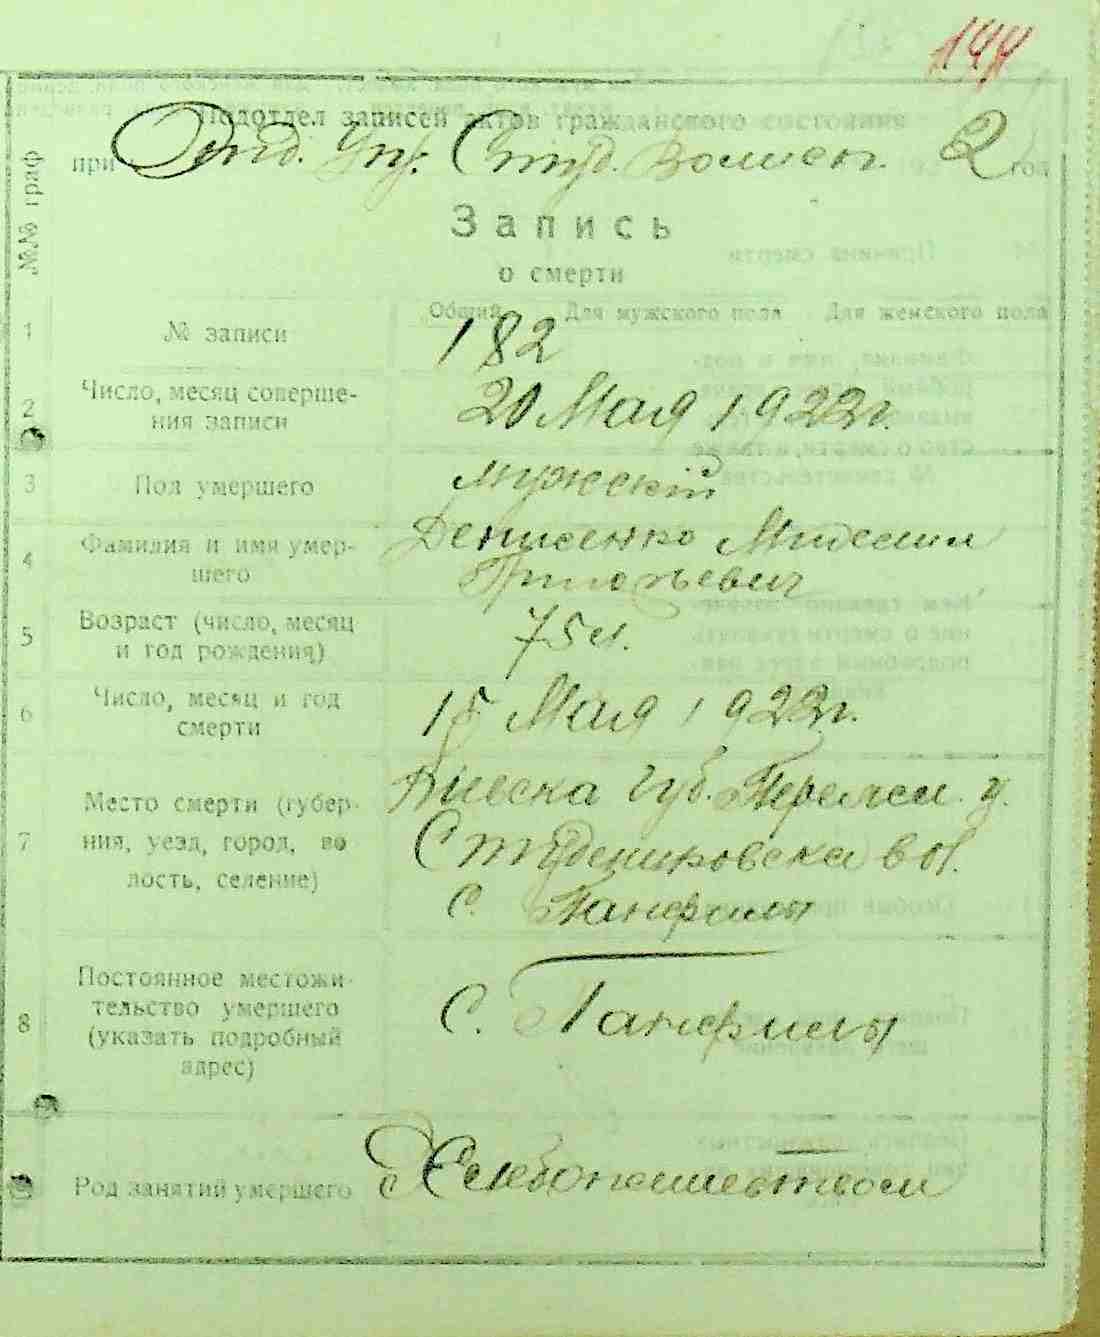 144
Подотдел записей актов гражданского состояния
при Отд. Упр. Студ. Волиспол. 2 год
№№ граф
Запись
о смерти
Общий Для мужского пола Для женского пола
1 № записи 182
2 Число, месяц соверше-
ния записи 20 Мая 1922 г.
3 Пол умершего мужскій
4 Фамилия и имя умер-
шего Денисенко Михаил
Григорьевич
5 Возраст (число, месяц
и год рождения) 75 л.
6 Число, месяц и год
смерти 15 Мая 1922 г.
7 Место смерти (губер-
ния, уезд, город, во
лость, селение) Киевска Губ. Переясл. у.
Студениковска вол.
С. Панфилы
8 Постоянное местожи-
тельство умершего
(указать подробный
адрес) С. Панфилы
9 Род занятий умершего Хлебопашеством